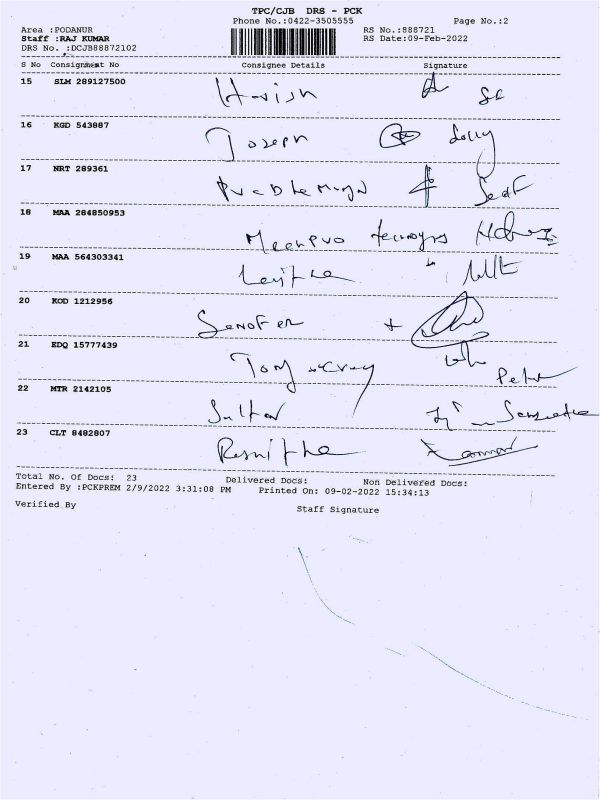 TPC/CJB DRS - PCK
Phone No.:0422-3505555 Page No.:2
Area :PODANUR RS No.:888721
Staff :RAJ KUMAR RS Date:09-Feb-2022
DRS No. :DCJB88872102
S No Consignment No Consignee Details Signature
15 SLM 289127500 Harish
16 KGD 543887 Joseph
17 NRT 289361
18 MAA 284850953
19 MAA 564303341
20 KOD 1212956
21 EDQ 15777439 Tony Peter
22 MTR 2142105 Sultan
23 CLT 8482807
Total No. Of Docs: 23 Delivered Docs: Non Delivered Docs:
Entered By :PCKPREM 2/9/2022 3:31:08 PM Printed On: 09-02-2022 15:34:13
Verified By Staff Signature